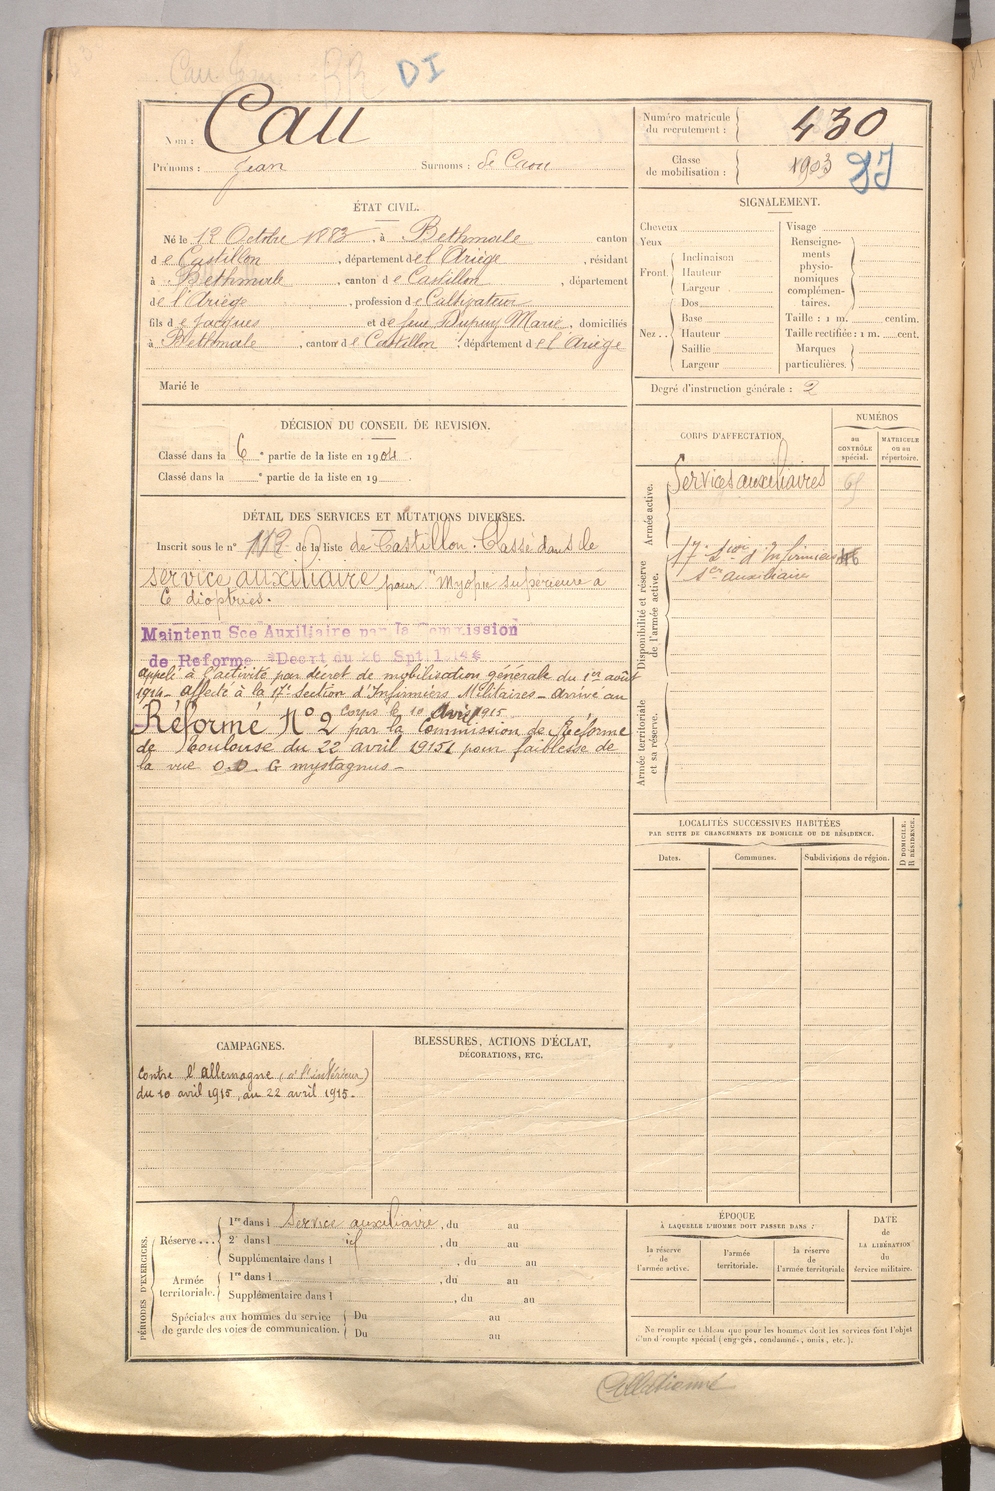 DI
Nom : Cau
Prénoms : Jean Surnoms : de Caou
Numéro matricule du recrutement : 430
Classe de mobilisation : 1903
ÉTAT CIVIL.
Né le 12 Octobre 1883, à Bethmale canton
de Castillon, département de l'Ariège, résidant
à Bethmale, canton de Castillon, département
de l'Ariège, profession de Cultivateur
fils de Jacques et de feue Dupuy Marie, domiciliés
à Bethmale, canton de Castillon, département de l'Ariège
Marié le
SIGNALEMENT.
Cheveux
Yeux
Front. Inclinaison
Hauteur
Largeur
Nez.. Dos
Base
Hauteur
Saillie
Largeur
Visage
Renseignements physionomiques complémentaires.
Taille : 1 m. centim.
Taille rectifiée : 1 m. cent.
Marques particulières.
Degré d'instruction générale : 2
DÉCISION DU CONSEIL DE REVISION.
Classé dans la 6e partie de la liste en 1904.
Classé dans la e partie de la liste en 19 .
DÉTAIL DES SERVICES ET MUTATIONS DIVERSES.
Inscrit sous le n° 112 de la liste de Castillon. Classé dans le
service auxiliaire pour "Myopie supérieure à
6 dioptries.
Maintenu Sce Auxiliaire par la Commission
de Reforme Decret du 26 Spt
appelé à l'activité par décret de mobilisation générale du 1er août
1914 - affecté à la 17e Section d'Infirmiers Militaires - arrivé au
corps le 10 avril 1915
Réformé N° 2 par la Commission de Réforme
de Toulouse du 22 avril 1915 pour faiblesse de
la vue O.D. G mystagnus -
CORPS D'AFFECTATION.
NUMÉROS
au CONTRÔLE spécial.
MATRICULE ou au répertoire.
Armée active.
Services auxiliaires 65
Disponibilité et réserve de l'armée active.
17e Son d'Infirmiers
Sce auxiliaire
Armée territoriale et sa réserve.
LOCALITÉS SUCCESSIVES HABITÉES
PAR SUITE DE CHANGEMENTS DE DOMICILE OU DE RÉSIDENCE.
D DOMICILE.
R RÉSIDENCE.
Dates. Communes. Subdivisions de région.
CAMPAGNES.
Contre l'Allemagne (à l'intérieur)
du 10 avril 1915, au 22 avril 1915 -
BLESSURES, ACTIONS D'ÉCLAT,
DÉCORATIONS, ETC.
PÉRIODES D'EXERCICES.
Réserve... 1re dans l Service auxiliaire, du au
2e dans l id, du au
Supplémentaire dans l , du au
Armée territoriale. 1re dans l , du au
Supplémentaire dans l , du au
Spéciales aux hommes du service de garde des voies de communication. Du au
Du au
ÉPOQUE
À LAQUELLE L'HOMME DOIT PASSER DANS :
la réserve de l'armée active.
l'armée territoriale.
la réserve de l'armée territoriale
DATE de LA LIBÉRATION du service militaire.
Ne remplir ce tableau que pour les hommes dont les services font l'objet
d'un décompte spécial (engagés, condamnés, omis, etc.).
Collationné